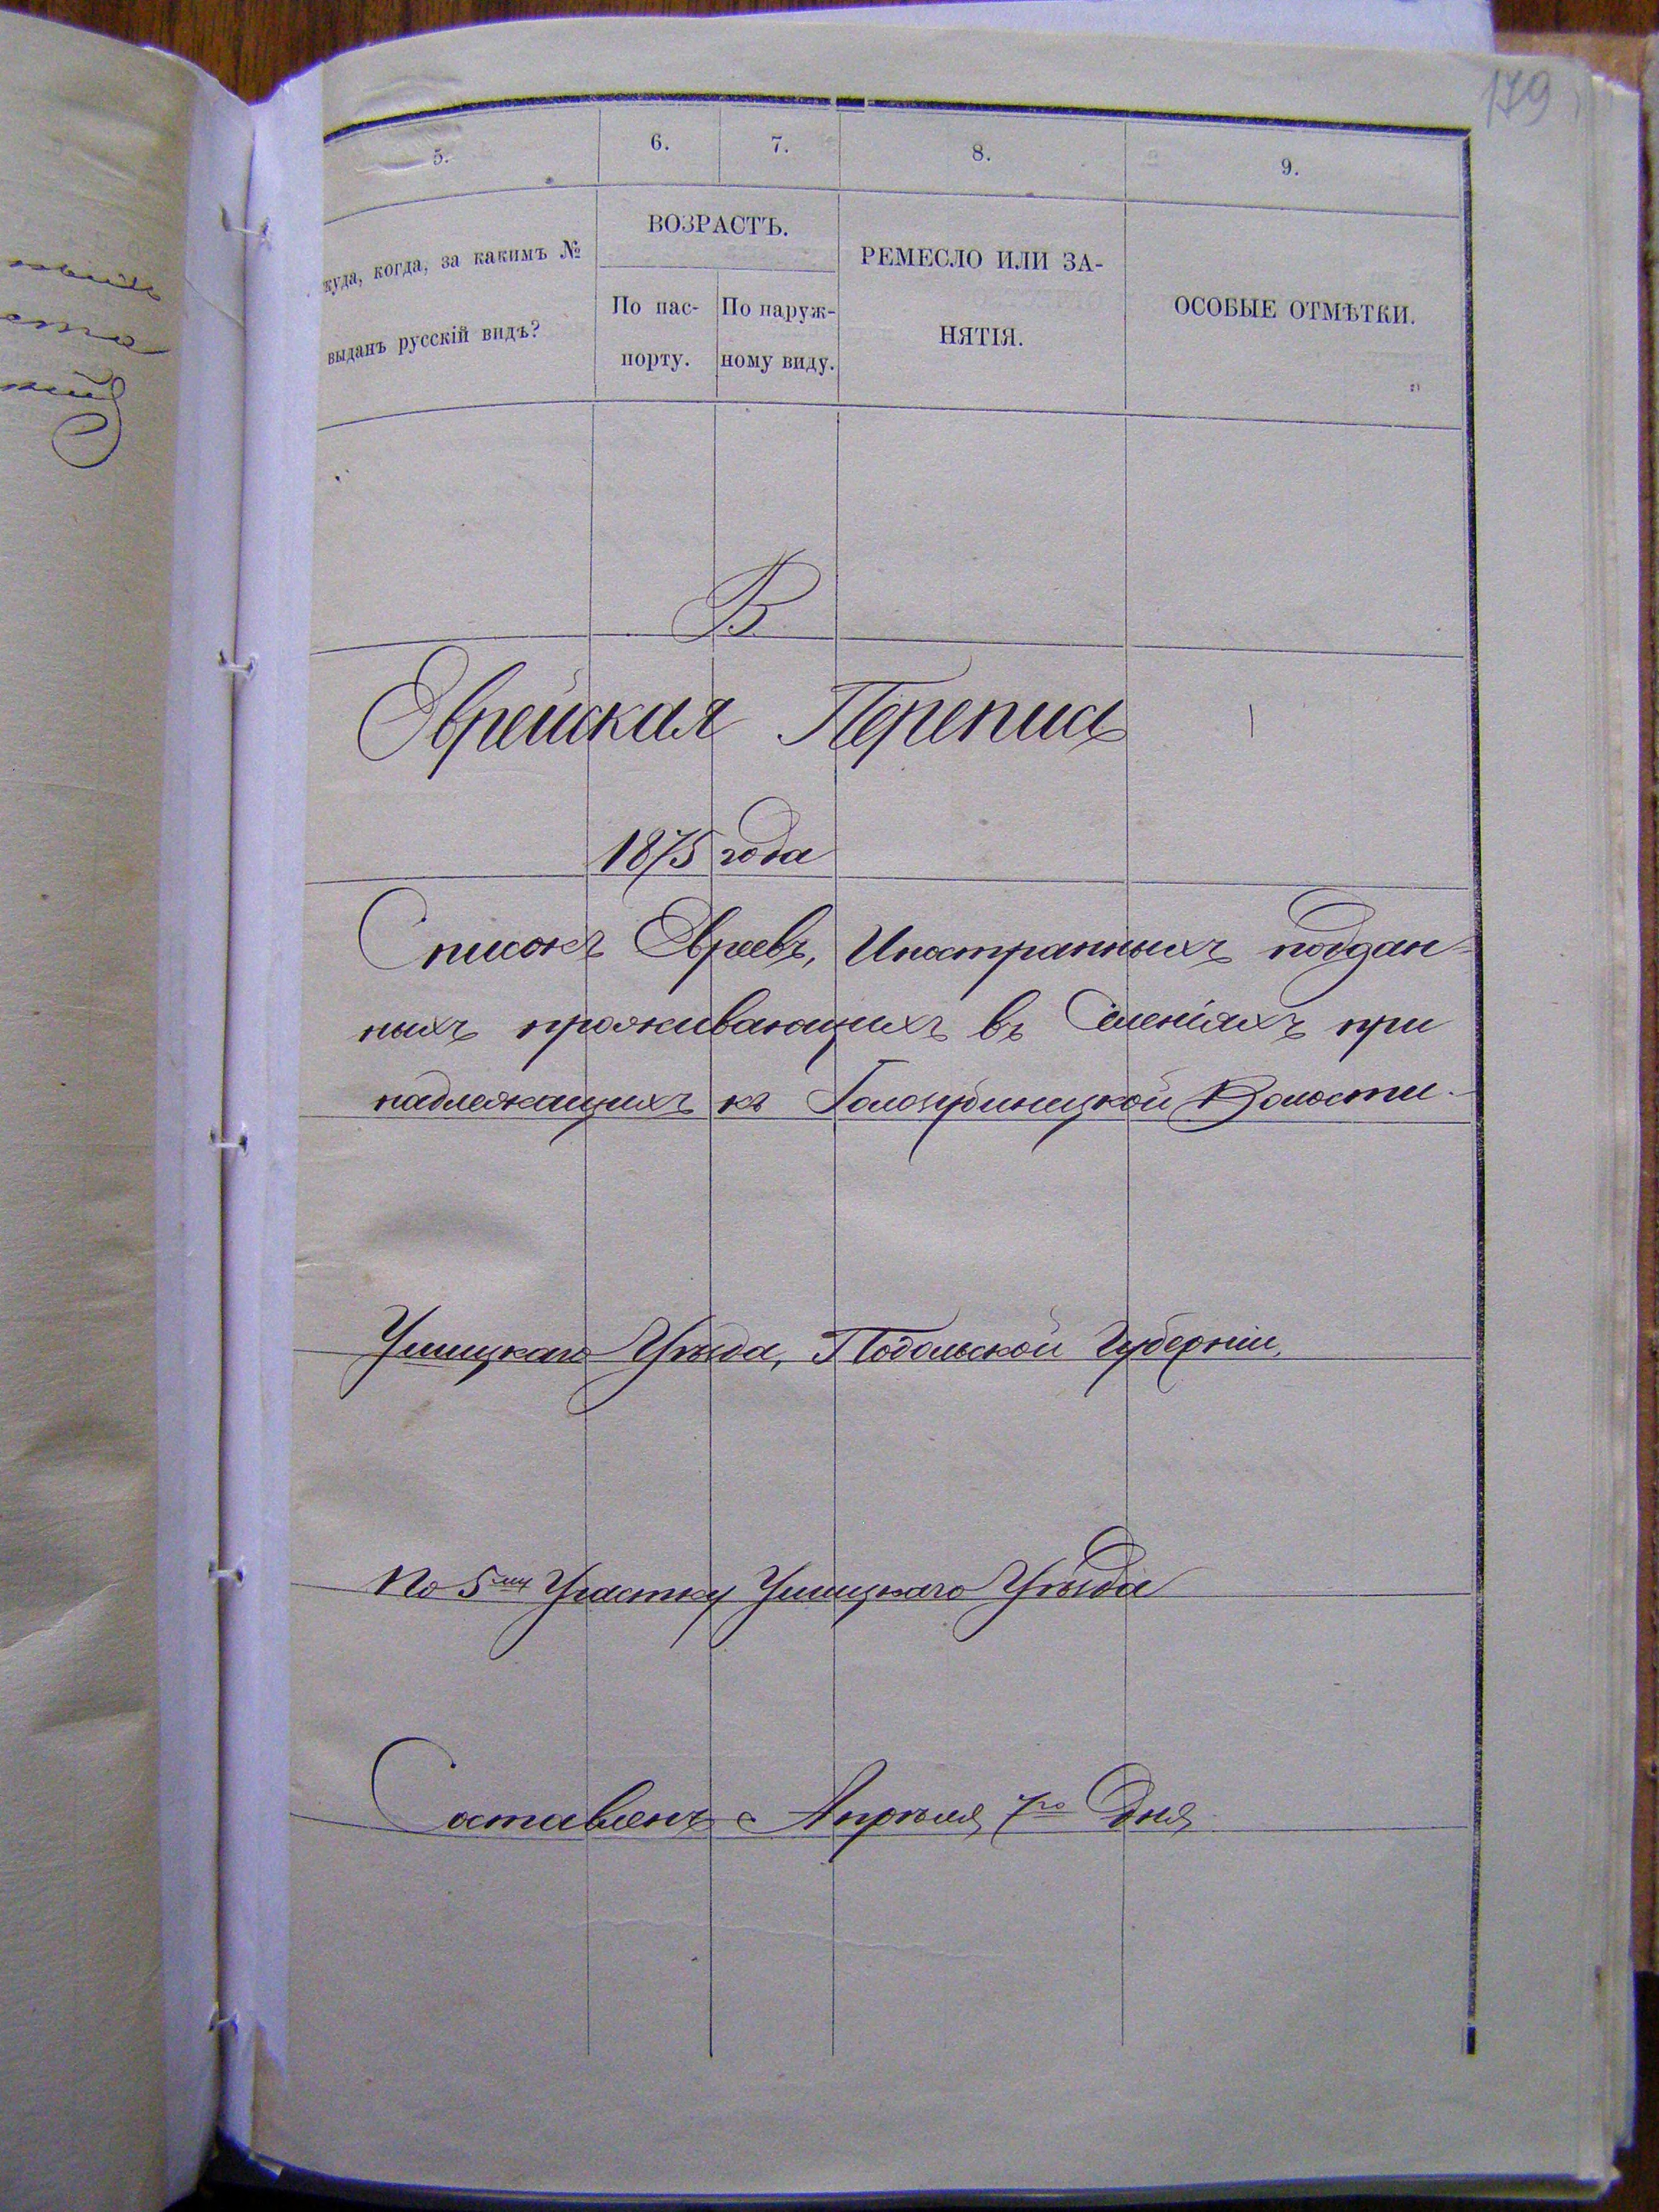 179
5.
6.
7.
8.
9.
куда, когда, за какимъ №
выданъ русскій видъ?
ВОЗРАСТЪ.
По пас-
порту.
По наруж-
ному виду.
РЕМЕСЛО ИЛИ ЗА-
НЯТІЯ.
ОСОБЫЕ ОТМѢТКИ.
В
Еврейская Перепись
1875 года
Списокъ Евреевъ, Иностранныхъ поддан=
ныхъ проживающихъ въ Селеніяхъ при
надлежащихъ къ Волости.
Ушицкаго Уѣзда, Подольской Губерніи,
По 5му Участку Ушицкаго Уѣзда
Составленъ Апрѣля 7го Дня